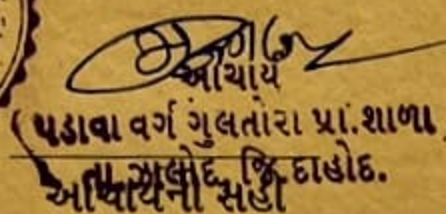 આચાર્ય
પડાવા વર્ગ ગુલતોરા પ્રા.શાળા
તા.ઝાલોદ, જિ.દાહોદ.
આચાર્યની સહી